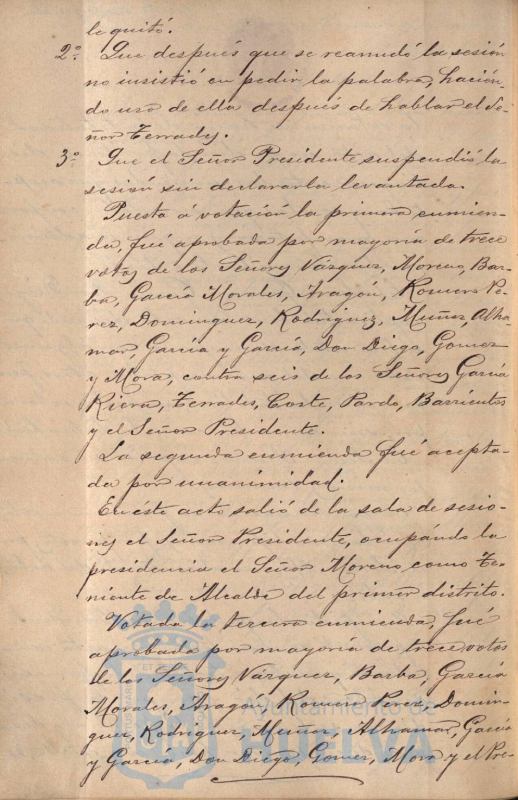 le quitó.
2º. Que después que se reanudó la sesión
no insistió en pedir la palabra, hacién-
do uso de ella después de hablar el Se-
ñor Terrades.
3º Que el Señor Presidente suspendió la
sesión sin declararla levantada.
Puesta á votación la primera enmien-
da, fué aprobada por mayoría de trece
votos de los Señores Vázquez, Moreno, Bar-
ba, García Morales, Aragón, Romero Pé-
rez, Dominguez, Rodriguez, Muñoz, Alha-
mar, García y García, Don Diego, Gomez
y Mora, contra seis de los Señores García
Riera, Terrades, Coste, Pardo, Barrientos
y el Señor Presidente.
La segunda enmienda fué acepta-
da por unanimidad.
En éste acto salió de la sala de sesio-
nes el Señor Presidente, ocupándo la
presidencia el Señor Moreno, como Te-
niente de Alcalde del primer distrito.
Votada la tercera enmienda, fué
aprobada por mayoría de trece votos
de los Señores Vázquez, Barba, García
Morales, Aragón, Romero Perez, Domin-
guez, Rodriguez, Muñoz, Alhamar, García
y García, Don Diego, Gomez, Mora y el Pre-
Ayuntamiento de
HUELVA